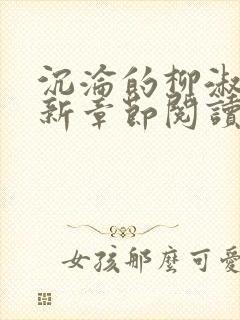 沉淪的柳淑
新章節閱讀
女孩那麼可愛